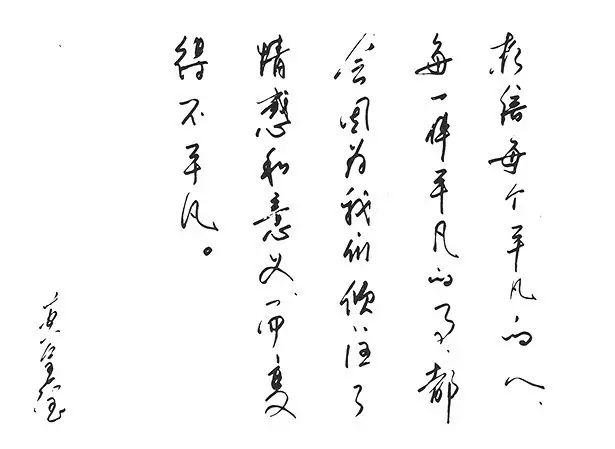 相信每个平凡的人，
每一件平凡的事，都
会因为我们倾注了
情感和意义，而变
得不平凡。